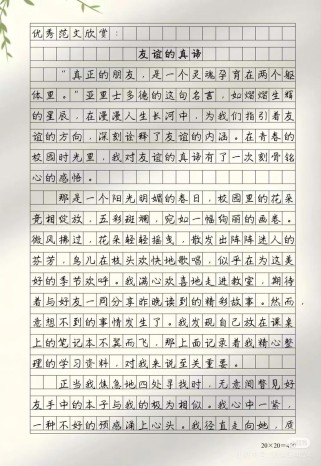 优秀范文欣赏：
友谊的真谛
“真正的朋友，是一个灵魂孕育在两个躯
体里。”亚里士多德的这句名言，如熠熠生辉
的星辰，在漫漫人生长河中，为我们指引着友
谊的方向，深刻诠释了友谊的内涵。在青春的
校园时光里，我对友谊的真谛有了一次刻骨铭
心的感悟。
那是一个阳光明媚的春日，校园里的花朵
竞相绽放，五彩斑斓，宛如一幅绚丽的画卷。
微风拂过，花朵轻轻摇曳，散发出阵阵迷人的
芬芳，鸟儿在枝头欢快地歌唱，似乎在为这美
好的季节欢呼。我满心欢喜地走进教室，期待
着与好友一同分享昨晚读到的精彩故事。然而
意想不到的事情发生了。我发现自己放在课桌
上的笔记本不翼而飞，那上面记录着我精心整
理的学习资料，对我来说至关重要。
正当我焦急地四处寻找时，无意间瞥见好
友手中的本子与我的极为相似。我心中一紧，
一种不好的预感涌上心头。我径直走向她，质